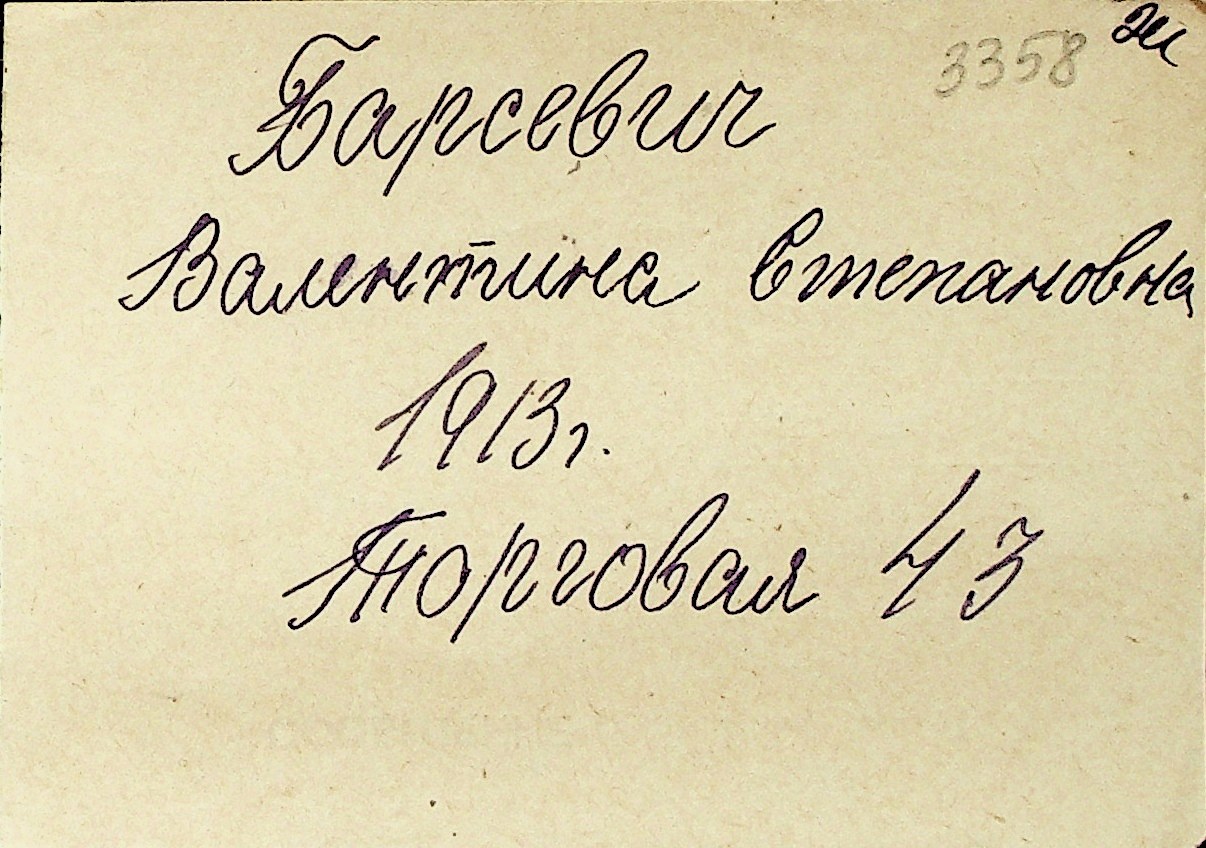 3358 ж
Барсевич
Валентина Степановна
1913г.
Торговая 43